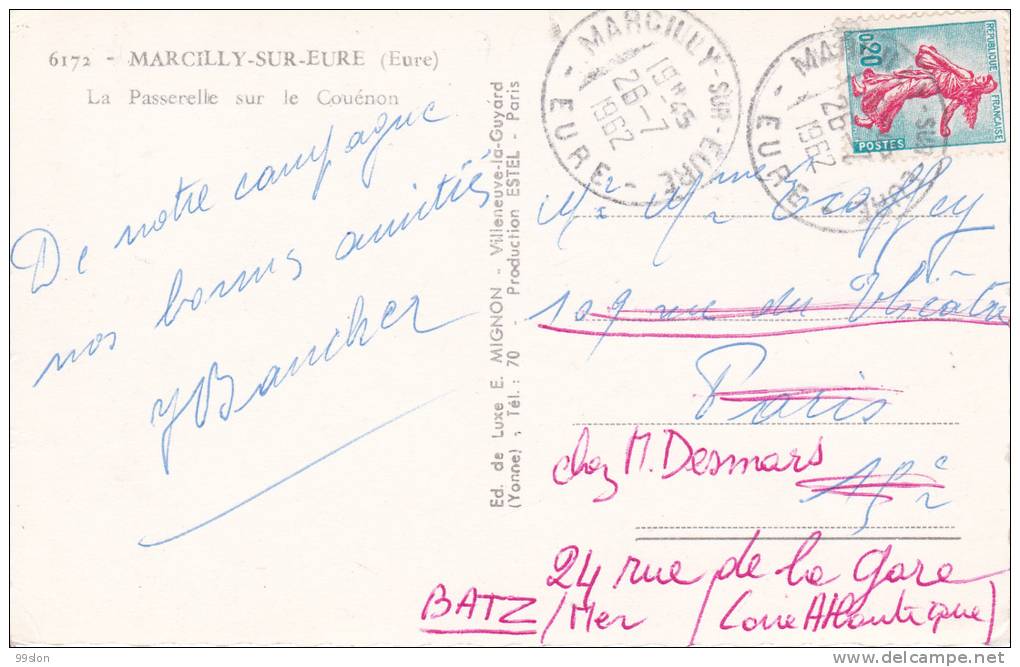 6172 - MARCILLY-SUR-EURE (Eure)
La Passerelle sur le Couénon
De notre campagne
nos bonnes amitiés
YBancher
Ed. de Luxe E. MIGNON - Villeneuve-la-Guyard
(Yonne) ; Tél.: 70 - Production ESTEL - Paris
MARCILLY-SUR-EURE
19H45
26-7
1962
- EURE -
MARCILLY-SUR-EURE
26-7
1962
- EURE
0,20
REPUBLIQUE FRANÇAISE
POSTES
Mr Mme
109 rue du Théâtre
Paris
15e
chez M. Desmars
24 rue de la Gare
BATZ/Mer (Loire Atlantique)
99slon
www.delcampe.net